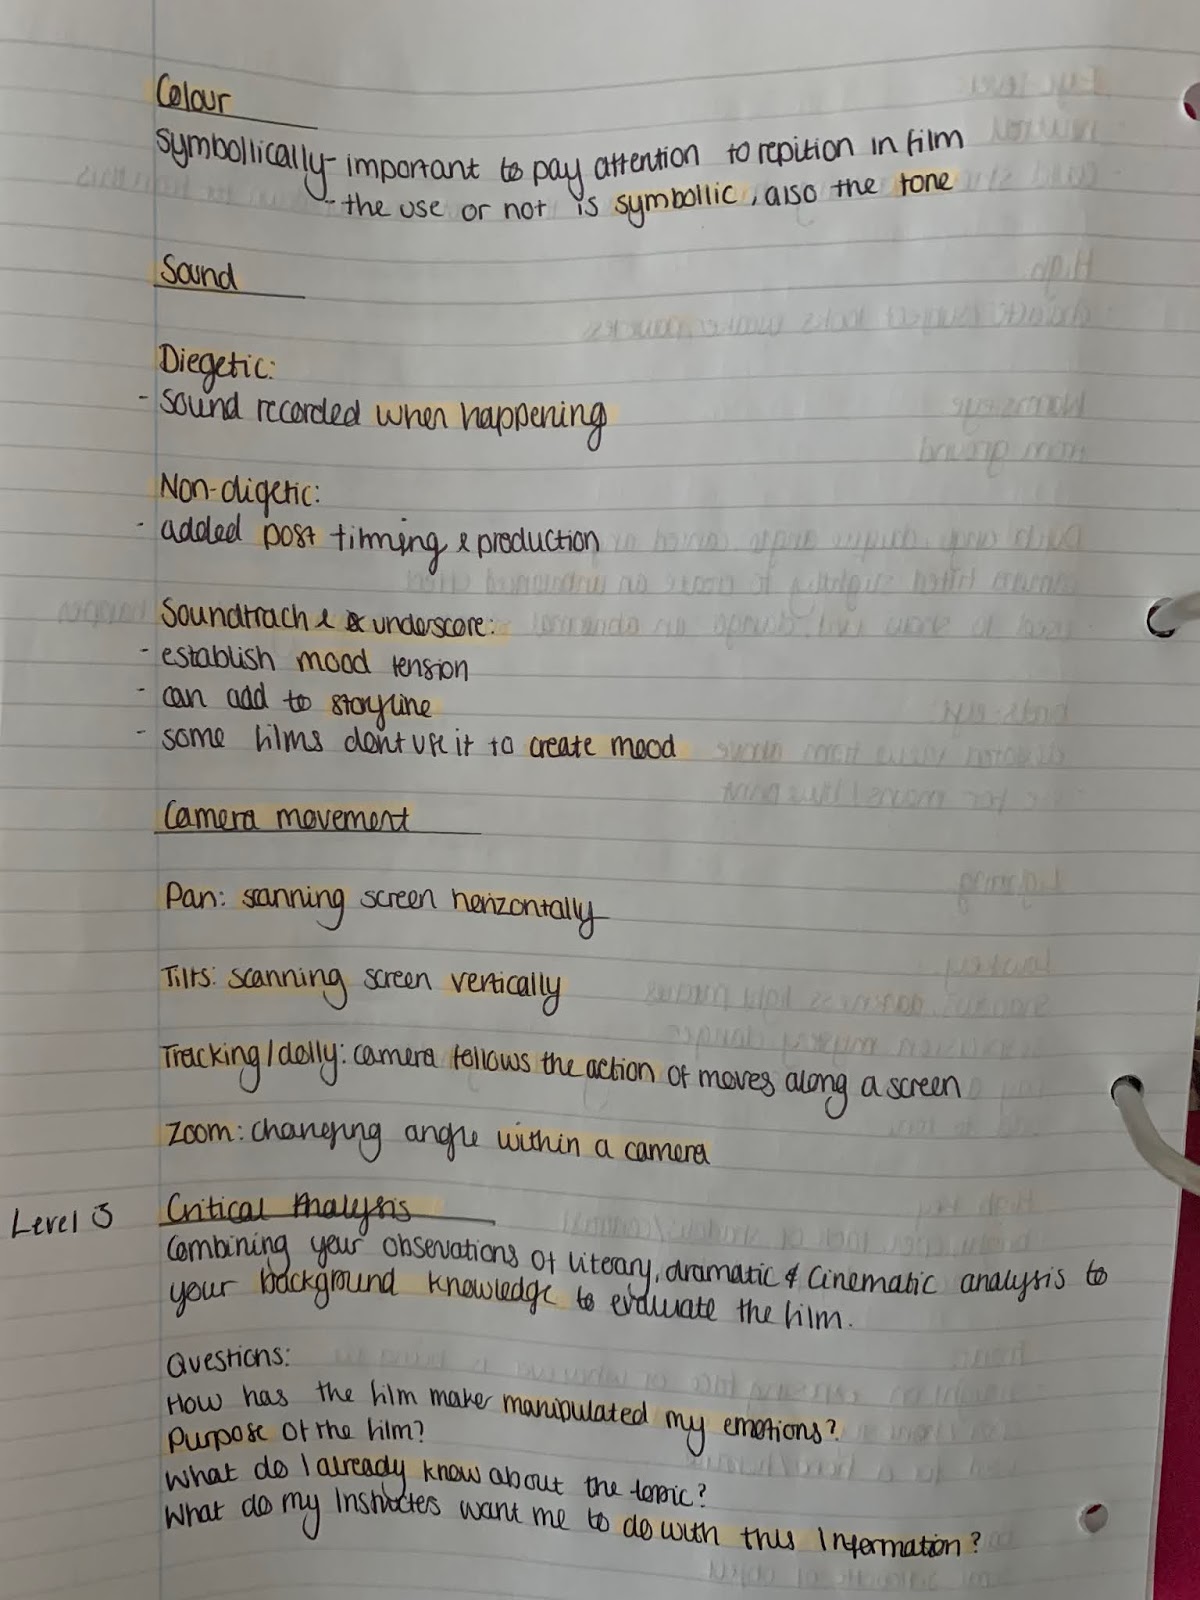 Colour
Symbollically - important to pay attention to repition in film
- the use or not is symbollic, also the tone
Sound
Diegetic:
- Sound recorded when happening
Non-digetic:
- added post filming & production
Soundtrach & & underscore:
- establish mood tension
- can add to storyline
- some films dont use it to create mood
Camera movement
Pan: scanning screen horizontally
Tilts: scanning screen vertically
Tracking/dolly: camera follows the action of moves along a screen
Zoom: changing angle within a camera
Level 3 Critical Analysis
Combining your observations of literary, dramatic & Cinematic analysis to
your background knowledge to evaluate the film.
Questions:
How has the film maker manipulated my emotions?
Purpose of the film?
What do I already know about the topic?
What do my want me to do with this Information?